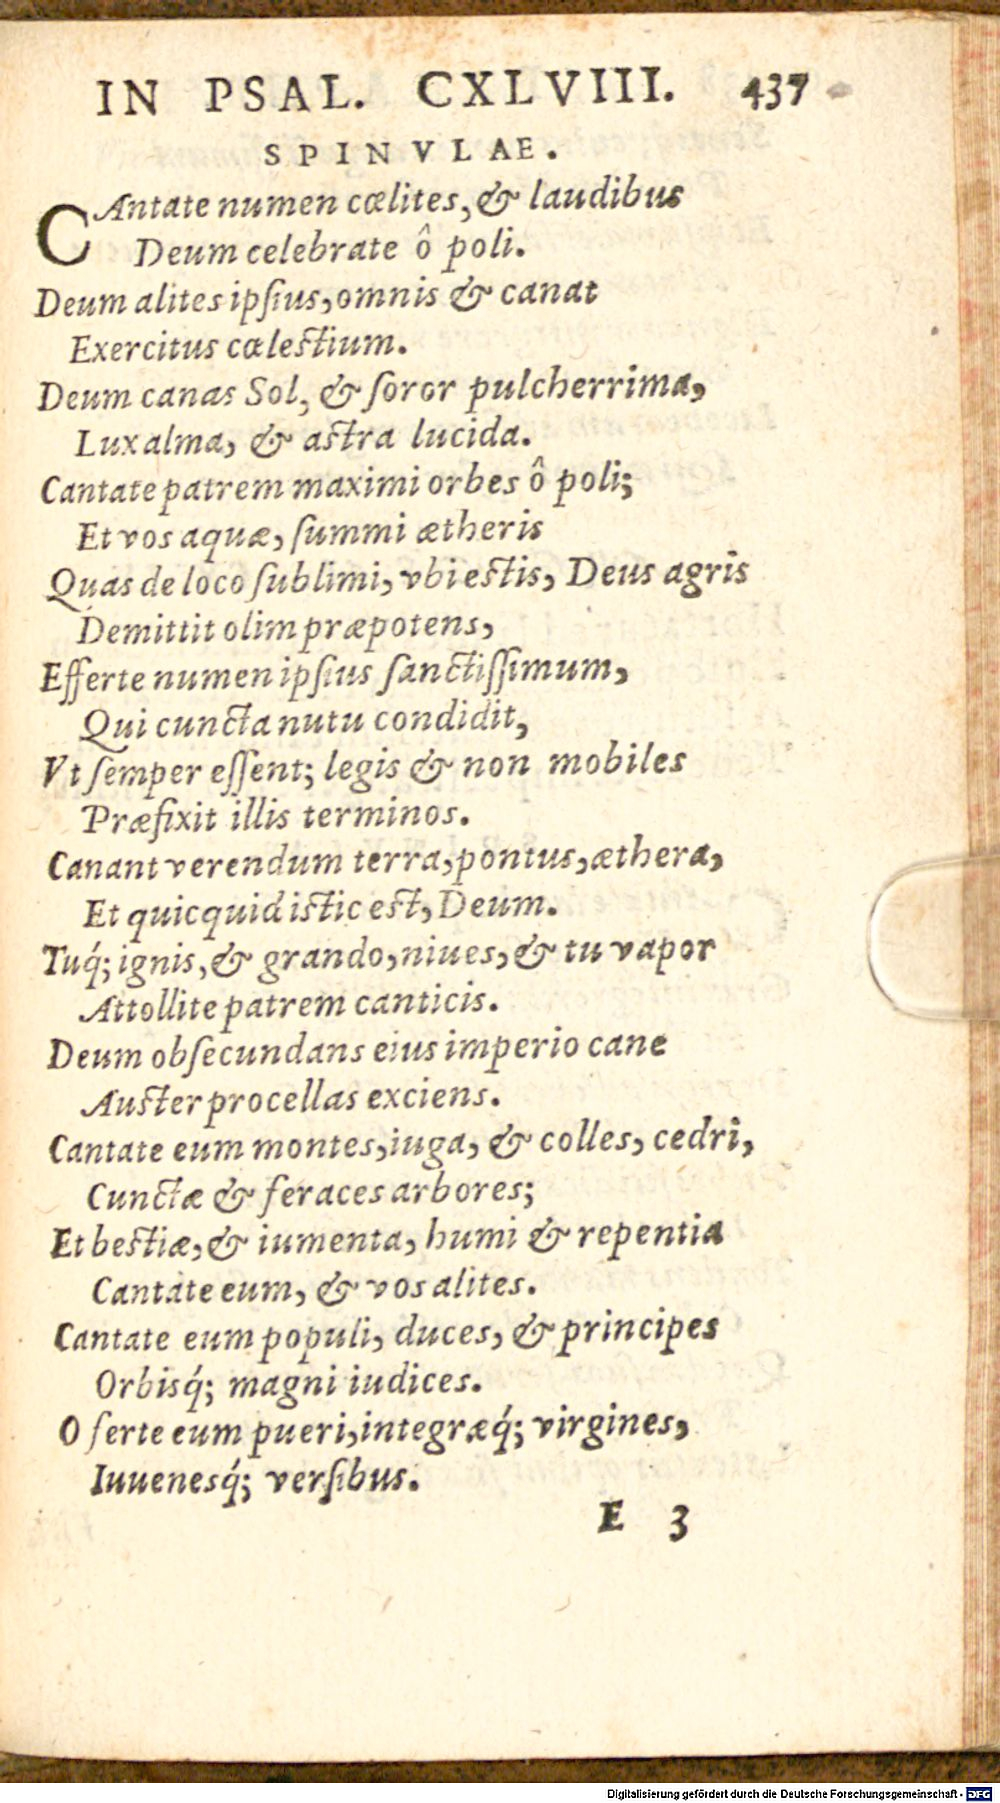 IN PSAL. CXLVIII. 437
SPINVLAE.
CAntate numen cœlites, & laudibus
Deum celebrate ô poli.
Deum alites ipſius, omnis & canat
Exercitus cœleſtium.
Deum canas Sol, & ſoror pulcherrima,
Lux alma, & aſtra lucida.
Cantate patrem maximi orbes ô poli;
Et vos aquæ, ſummi ætheris
Quas de loco ſublimi, vbi eſtis, Deus agris
Demittit olim præpotens,
Efferte numen ipſius ſanctiſſimum,
Qui cuncta nutu condidit,
Vt ſemper eſſent; legis & non mobiles
Præfixit illis terminos.
Canant verendum terra, pontus, æthera,
Et quicquid iſtic eſt, Deum.
Tuq́; ignis, & grando, niues, & tu vapor
Attollite patrem canticis.
Deum obſecundans eius imperio cane
Auſter procellas exciens.
Cantate eum montes, iuga, & colles, cedri,
Cunctæ & feraces arbores;
Et beſtiæ, & iumenta, humi & repentia
Cantate eum, & vos alites.
Cantate eum populi, duces, & principes
Orbisq́; magni iudices.
O ferte eum pueri, integræq́; virgines,
Iuuenesq́; verſibus.
E 3
Digitalisierung gefördert durch die Deutsche Forschungsgemeinschaft - DFG